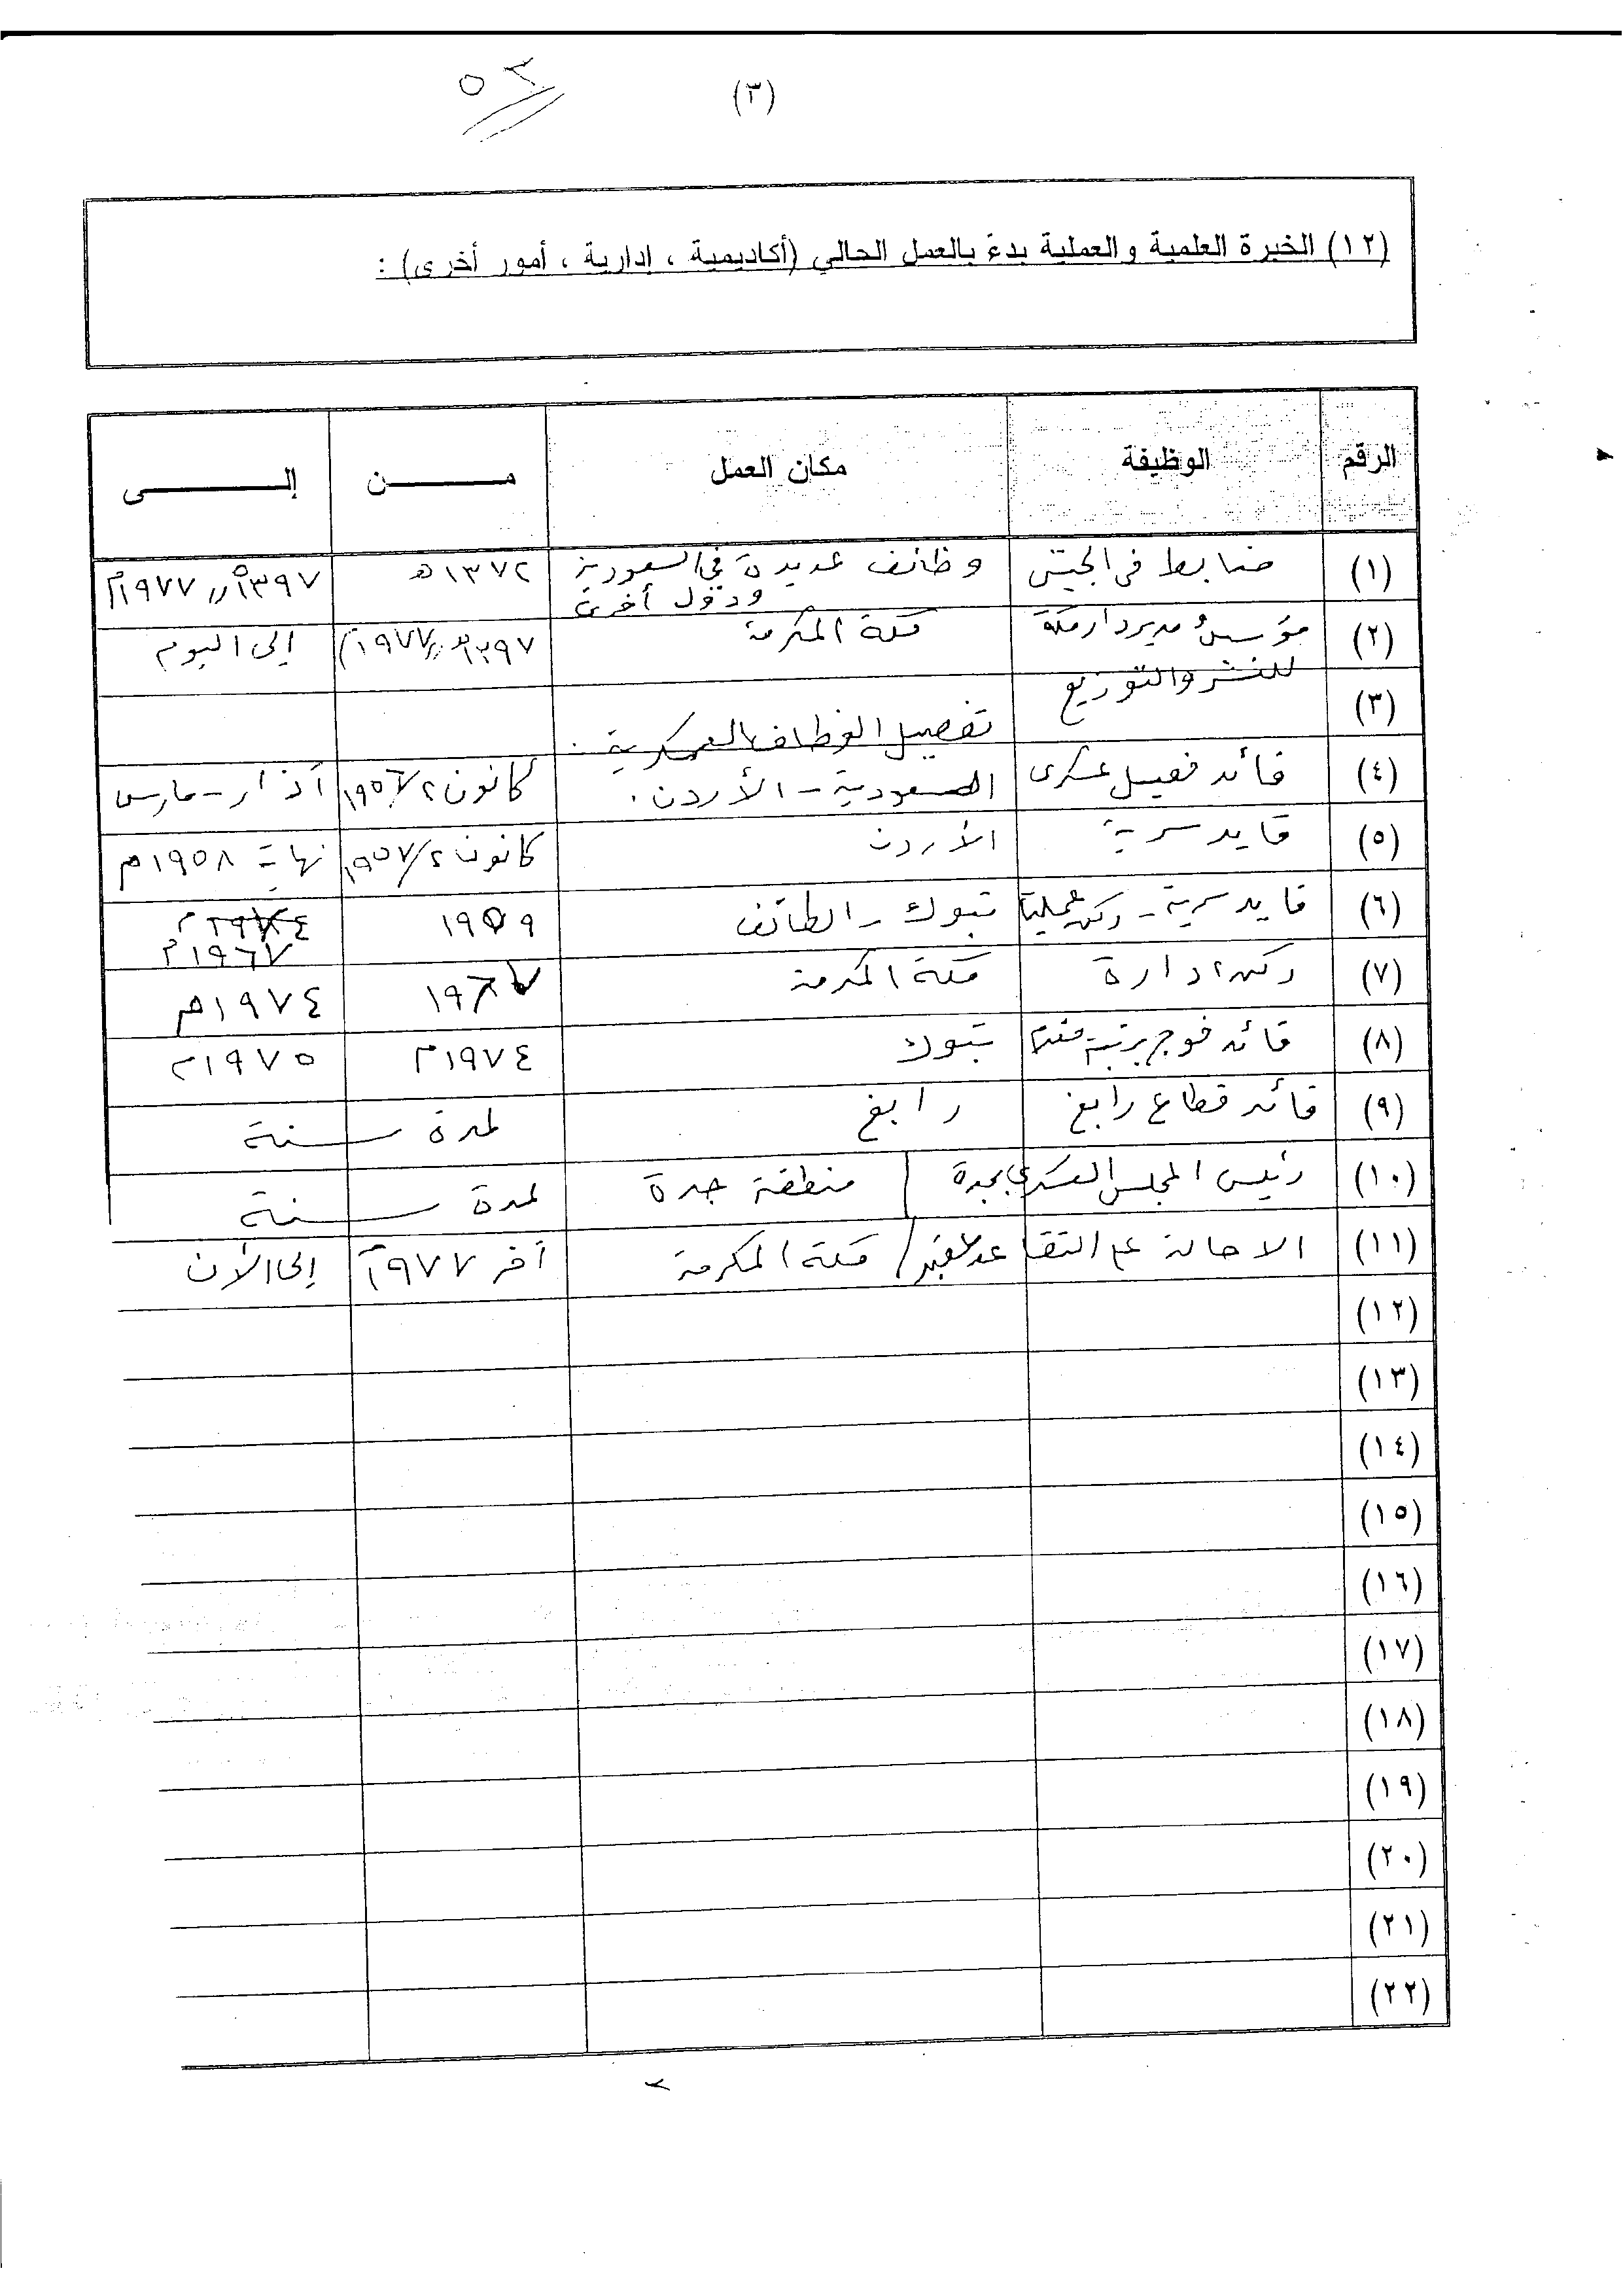 (٣)
٥٣
(١٢) الخبرة العلمية والعملية بدءً بالعمل الحالي (أكاديمية ، إدارية ، أمور أخرى) :
الرقم الوظيفة مكان العمل مـــن إلـــى
(١) ضابط في الجيش وظائف عديدة في السعودية ١٣٧٢هـ ١٣٩٧هـ // ١٩٧٧م
ودول أخرى
(٢) مؤسس ومدير دار مكة مكة المكرمة ١٣٩٧هـ // ١٩٧٧م إلى اليوم
للنشر والتوزيع
(٣) تفصيل الوظائف العسكرية :
(٤) قائد فصيل عسكري السعودية - الأردن . كانون ٢/ ١٩٥٦ آذار - مارس
(٥) قايد سرية الأردن كانون ٢/ ١٩٥٧ نهاية ١٩٥٨م
(٦) قايد سرية - ركن عمليات تبوك - الطائف ١٩٥٩ ١٩٧٤م
١٩٦٧م
(٧) ركن ادارة مكة المكرمة ١٩٦٧ ١٩٧٤م
(٨) قائد فوج برتبة مقدم تبوك ١٩٧٤م ١٩٧٥م
(٩) قائد قطاع رابغ رابغ لمدة سنة
(١٠) رئيس المجلس العسكري بجدة منطقة جدة لمدة سنة
(١١) الاحالة على التقاعد مكة المكرمة آخر ١٩٧٧م إلى الآن
(١٢)
(١٣)
(١٤)
(١٥)
(١٦)
(١٧)
(١٨)
(١٩)
(٢٠)
(٢١)
(٢٢)